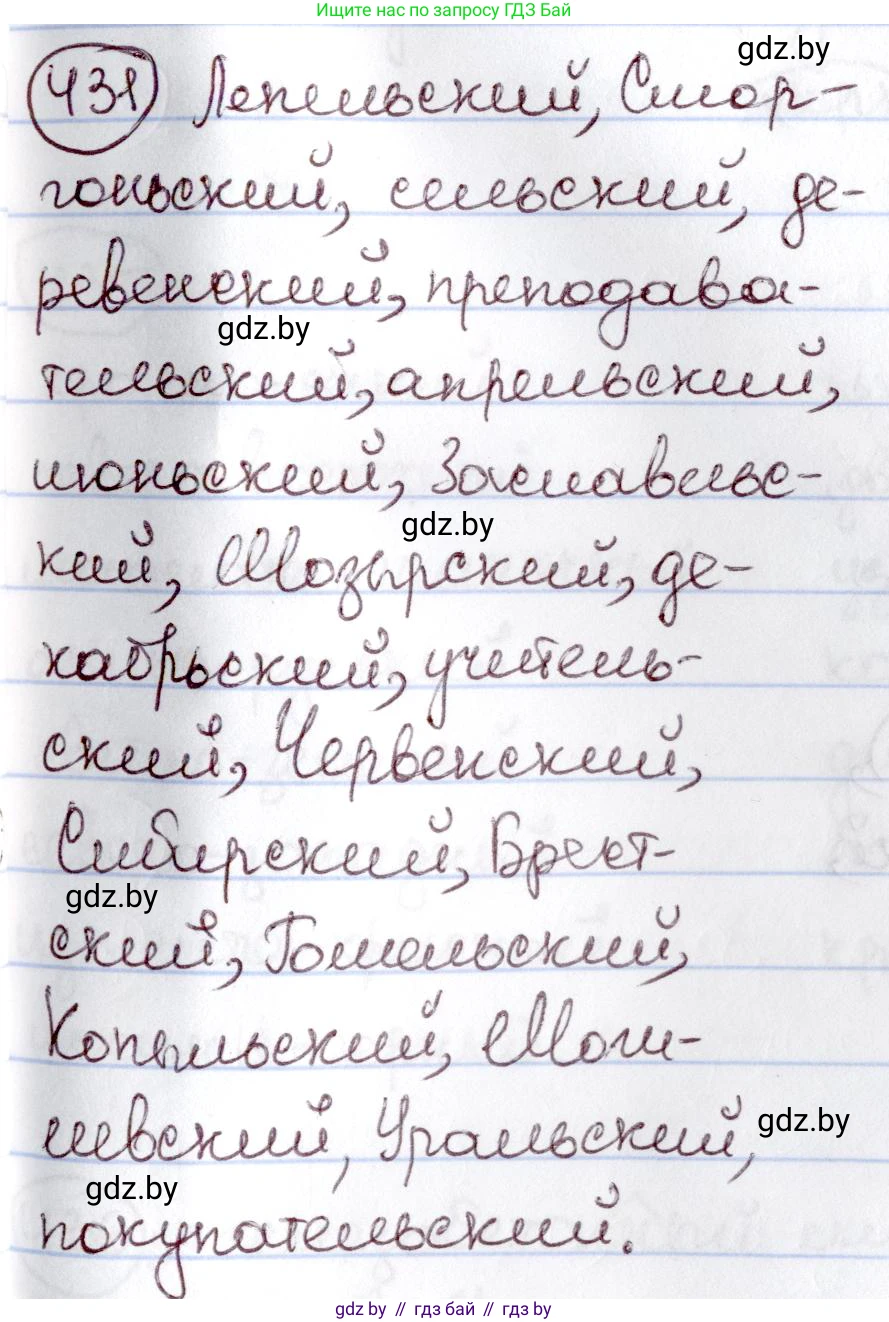 Ищите нас по запросу ГДЗ Бай
gdz.by
431 Лепельский, Смор-
гоньский, сельский, де-
ревенский, преподава-
gdz.by
тельский, апрельский,
июньский, Заславльс-
gdz.by
кий, Мозырский, де-
кабрьский, учитель-
ский, Червенский,
Сибирский, Брест-
gdz.by
ский, Гомельский,
Копыльский, Моги-
левский, Уральский,
gdz.by
gdz.by
покупательский.
gdz by // гдз бай // гдз by